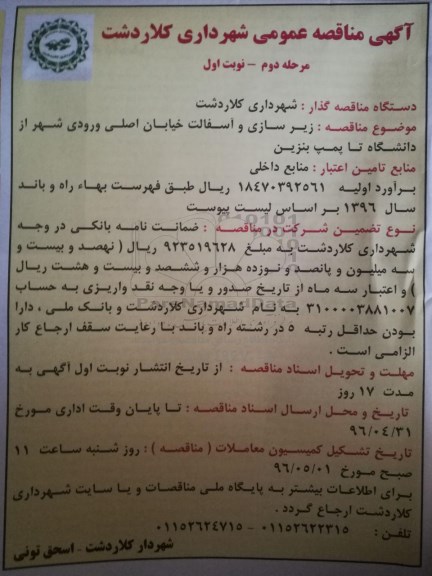 آگهی مناقصه عمومی شهرداری کلاردشت
مرحله دوم - نوبت اول
دستگاه مناقصه گذار : شهرداری کلاردشت
موضوع مناقصه : زیر سازی و آسفالت خیابان اصلی ورودی شهر از
دانشگاه تا پمپ بنزین
منابع تامین اعتبار : منابع داخلی
برآورد اولیه ۱۸۴۷۰۳۹۲۵۶۱ ریال طبق فهرست بهاء راه و باند
سال ۱۳۹۶ بر اساس لیست پیوست
نوع تضمین شرکت در مناقصه : ضمانت نامه بانکی در وجه
شهرداری کلاردشت به مبلغ ۹۲۳۵۱۹۶۲۸ ریال ( نهصد و بیست و
سه میلیون و پانصد و نوزده هزار و ششصد و بیست و هشت ریال
) و اعتبار سه ماه از تاریخ صدور و یا وجه نقد واریزی به حساب
۳۱۰۰۰۰۳۸۸۱۰۰۷ به نام شهرداری کلاردشت و بانک ملی ، دارا
بودن حداقل رتبه ۵ در رشته راه و باند با رعایت سقف ارجاع کار
الزامی است .
مهلت و تحویل اسناد مناقصه : از تاریخ انتشار نوبت اول آگهی به
مدت ۱۷ روز
تاریخ و محل ارسال اسناد مناقصه : تا پایان وقت اداری مورخ
۹۶/۰۴/۳۱
تاریخ تشکیل کمیسیون معاملات ( مناقصه ) : روز شنبه ساعت ۱۱
صبح مورخ ۹۶/۰۵/۰۱
برای اطلاعات بیشتر به پایگاه ملی مناقصات و یا سایت شهرداری
کلاردشت ارجاع گردد .
تلفن : ۰۱۱۵۲۶۲۲۳۱۵ - ۰۱۱۵۲۶۲۴۷۱۵
شهردار کلاردشت - اسحق تونی